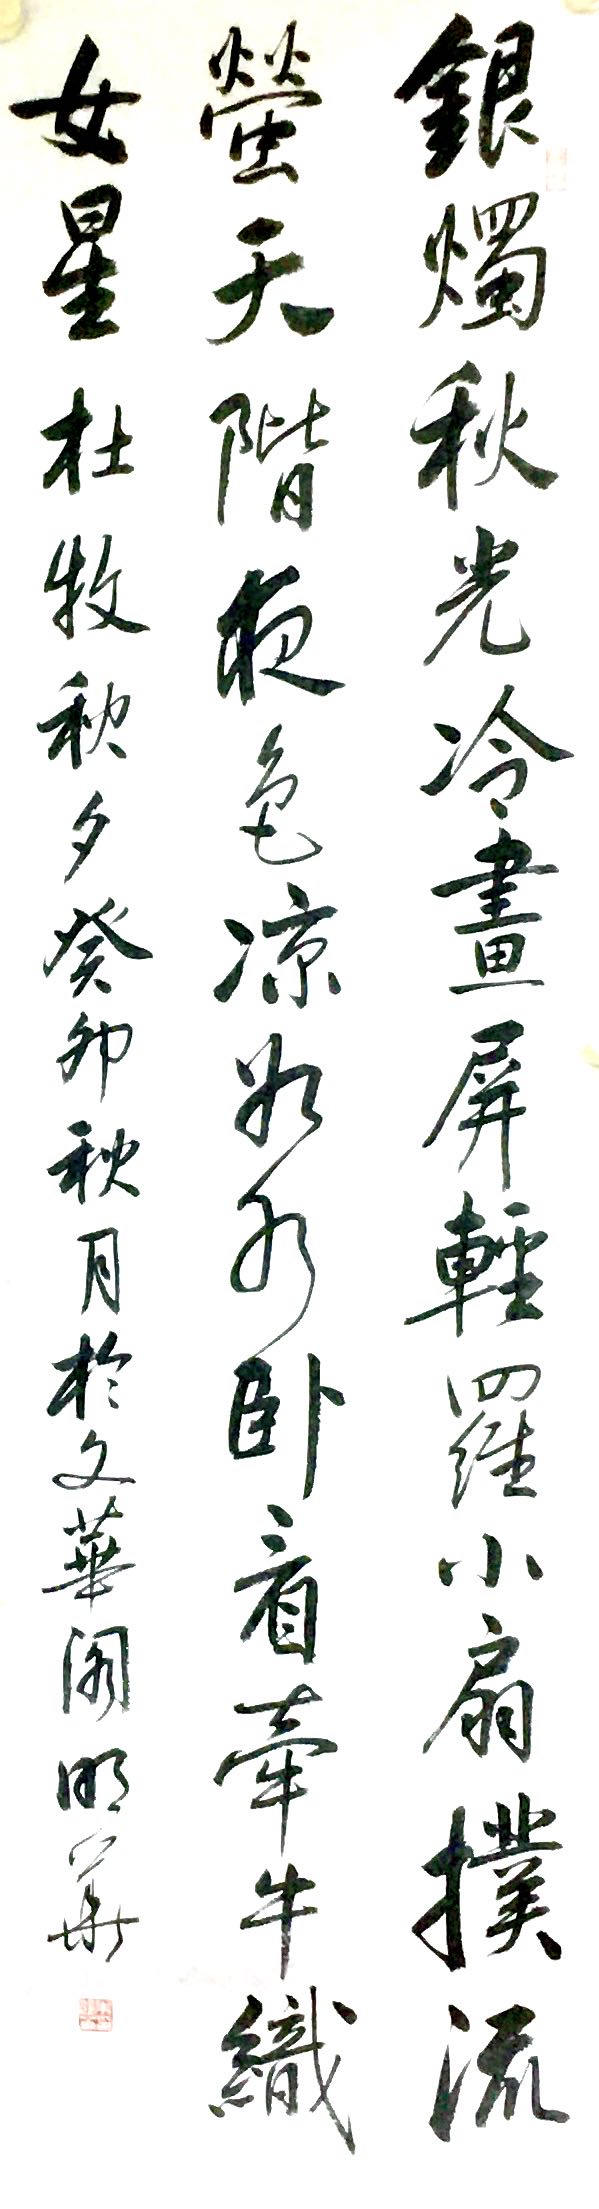 銀燭秋光冷畫屏輕羅小扇撲流
螢天階夜色凉如水卧看牽牛織
女星 杜牧秋夕癸卯秋月於文華閣明華